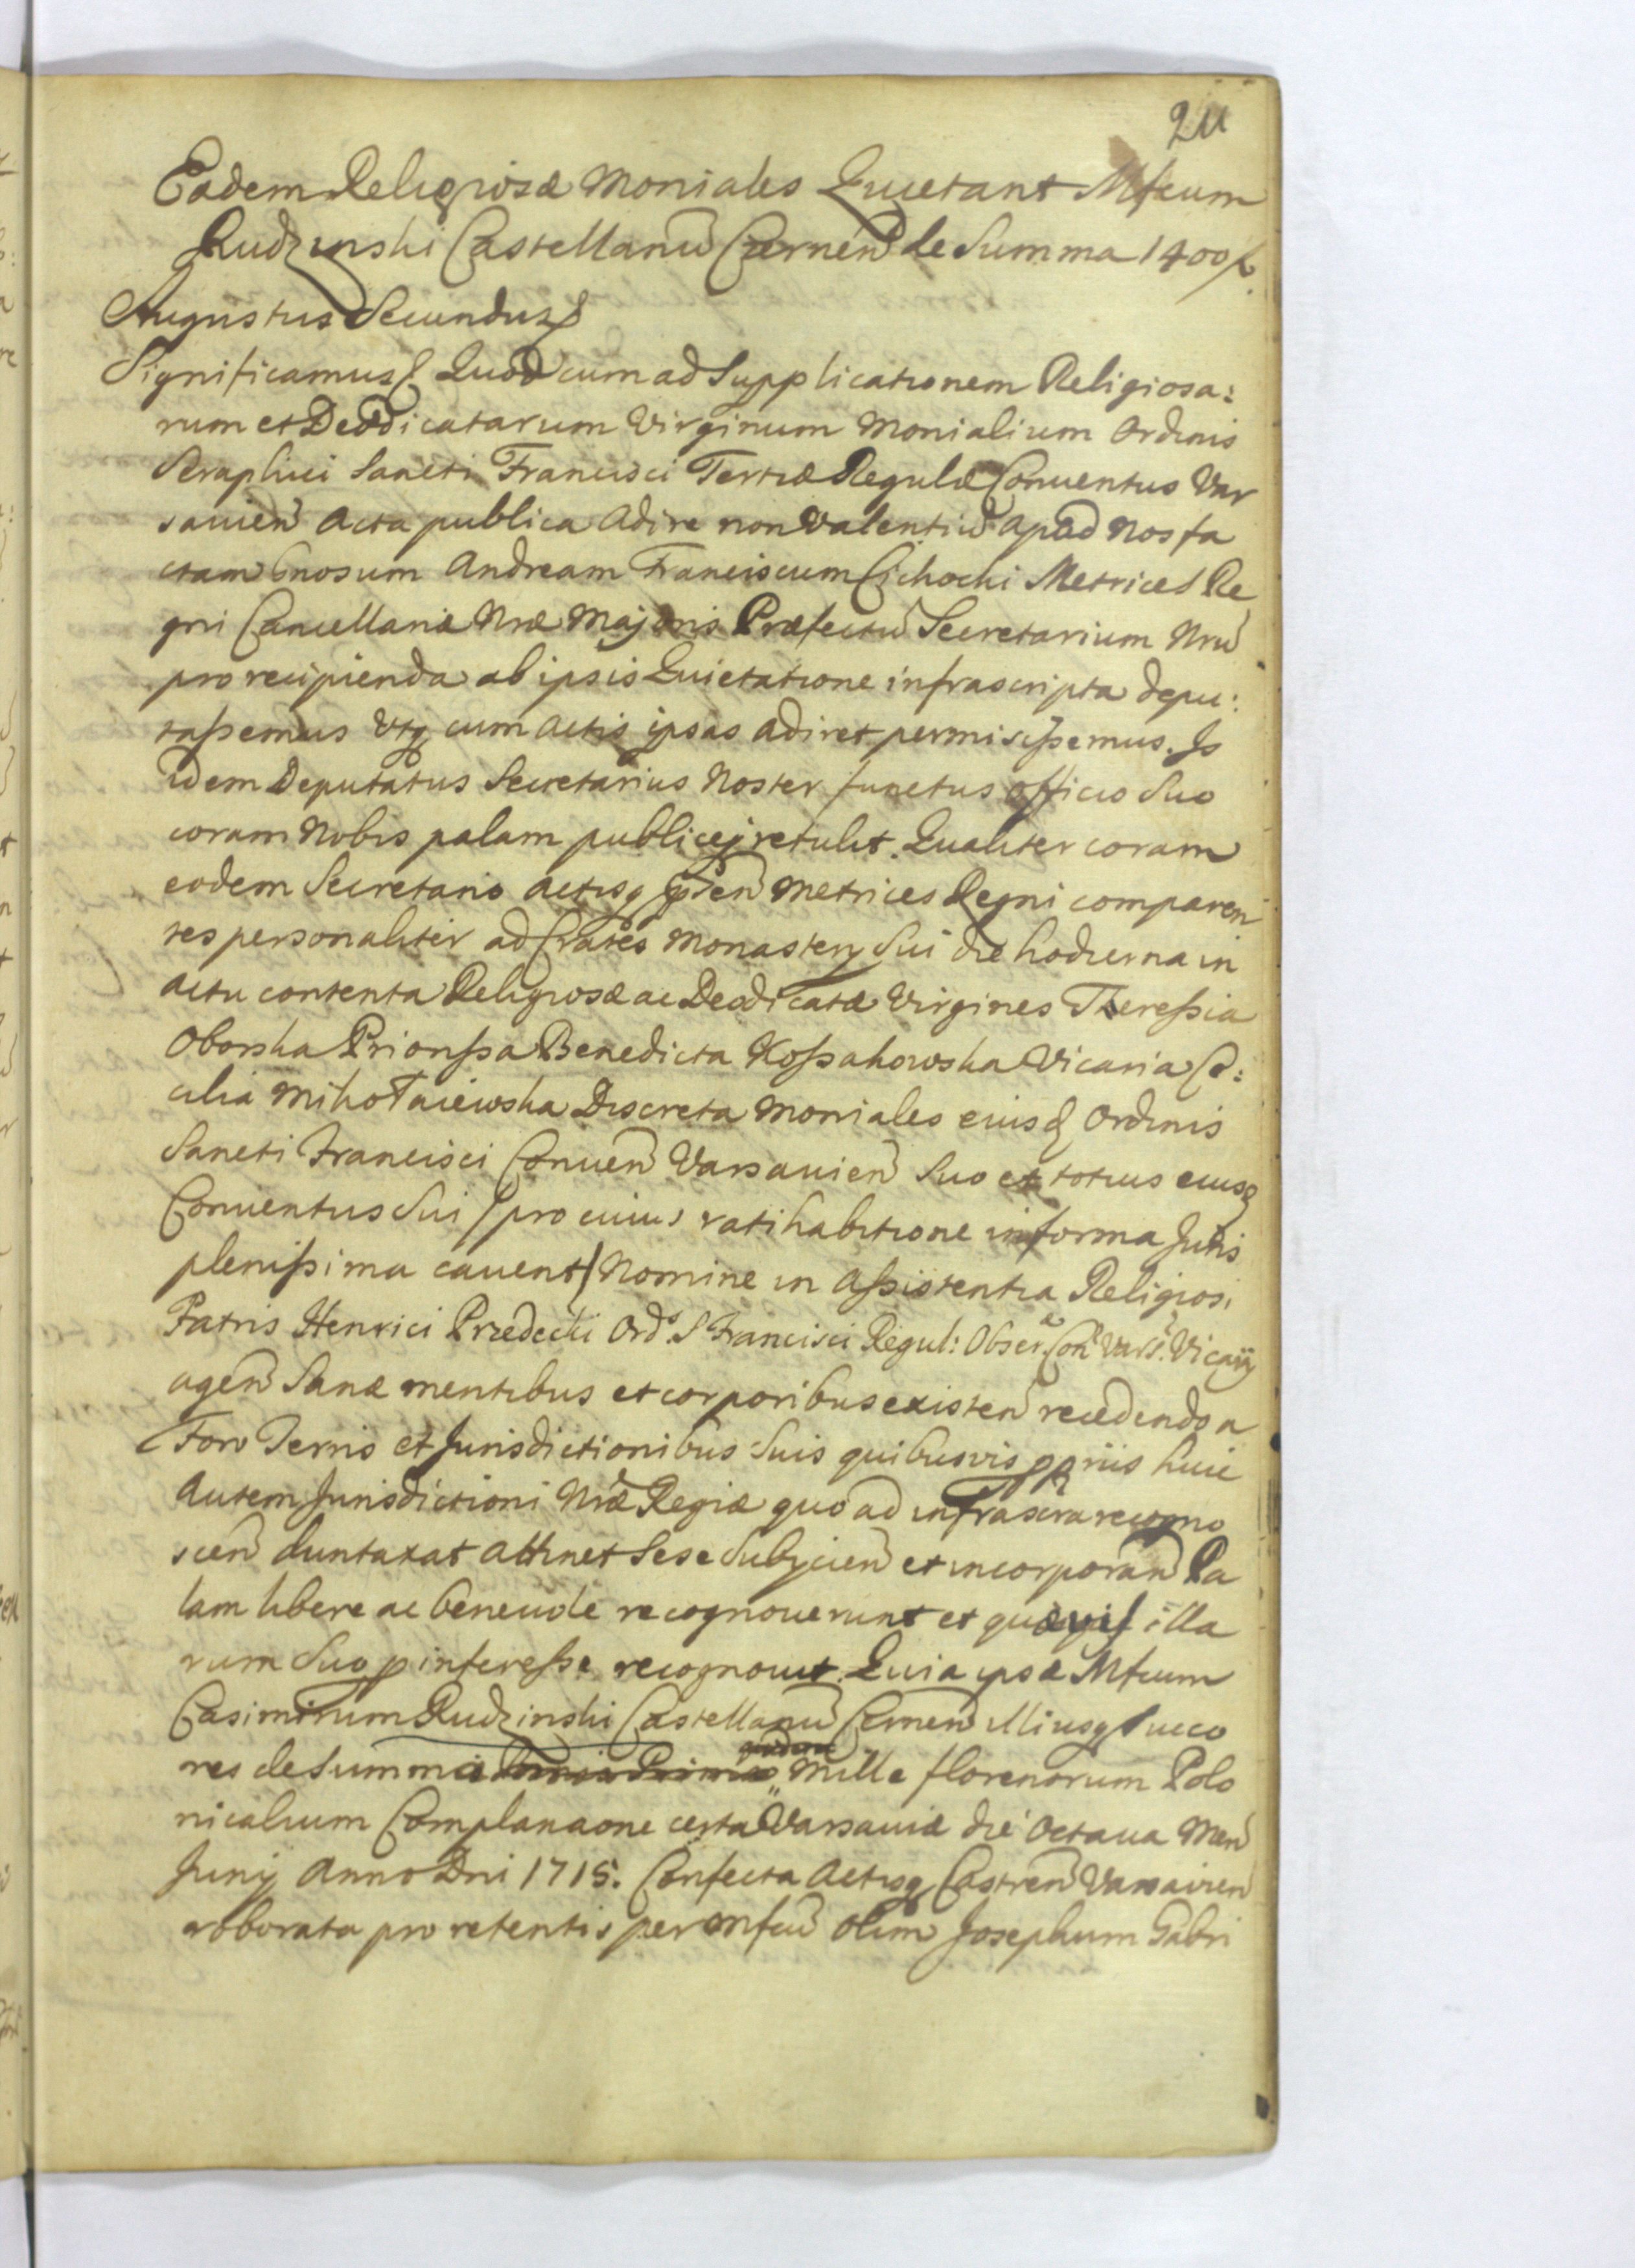 211
Eadem Religiosæ Moniales Quietant Mfcum
Rudzinski Castellanũ Czernen̄ de Summa 1400 f.
Augustus Secundus &
Significamus & Quod cum ad Supplicationem Religiosa:
rum et Deodicatarum Virginum Monialium Ordinis
Seraphici Sancti Francisci Tertiæ Regulæ Conuentus Var
sauien̄ Acta publica Adire non Valentiũ Apud Nos fa
ctam Gnosum Andream Franciscum Cichocki Metrices Re
gni Cancellariæ Nræ Majoris Præfectũ Secretarium Nrũ
pro recipienda ab ipsis Quietatione infrascripta depu:
tassemus Vtq cum Actis ipsas adiret permisissemus. Is
idem Deputatus Secretarius Noster functus officio Suo
coram Nobis palam publiceq retulit. Qualiter coram
eodem Secretario Actisq p̄sen̄ Metrices Regni comparen
tes personaliter ad Crates Monastery Sui die hodierna in
actu contenta Religiosæ ac Deodicatæ Virgines Theressia
Oborska Priorissa Benedicta Kossakowska Vicaria Ce:
cilia Mikołaiewska Discreta Moniales eiusd Ordinis
Sancti Francisci Conuen̄ Varsauien̄ Suo et totius eiusd
Conuentus Sui / pro cuius ratihabitione in forma Juris
plenissima cauent / Nomine in Assistentia Religiosi
Patris Henrici Przedecki Ord. S Francisci Regul: Obser. Con Vars. Vicarij
agen̄ Sanæ mentibus et corporibus existen̄ recedendo a
Foro Terris et Jurisdictionibus Suis quibusvis ppriis huic
Autem Jurisdictioni Nræ Regiæ quo ad infrascra recogno
scen̄ duntaxat attinet Sese Subjicien̄ et incorporan̄ Pa
lam libere ac beneuole recognouerunt et quævis illa
rum Suo p interesse recognouit. Quia ipsæ Mfcum
Casimirum Rudzinski Castellanũ Czernen̄ Illiusq Succo
res de Summa Mille florenorum Polo
nicalium Complanaone certa Varsauiæ die Octaua Men̄
Junij Anno Dni 1715. Confecta Actisq Castren̄ Varsauien̄
roborata pro retentis per Mfcũ olim Josephum Gabri